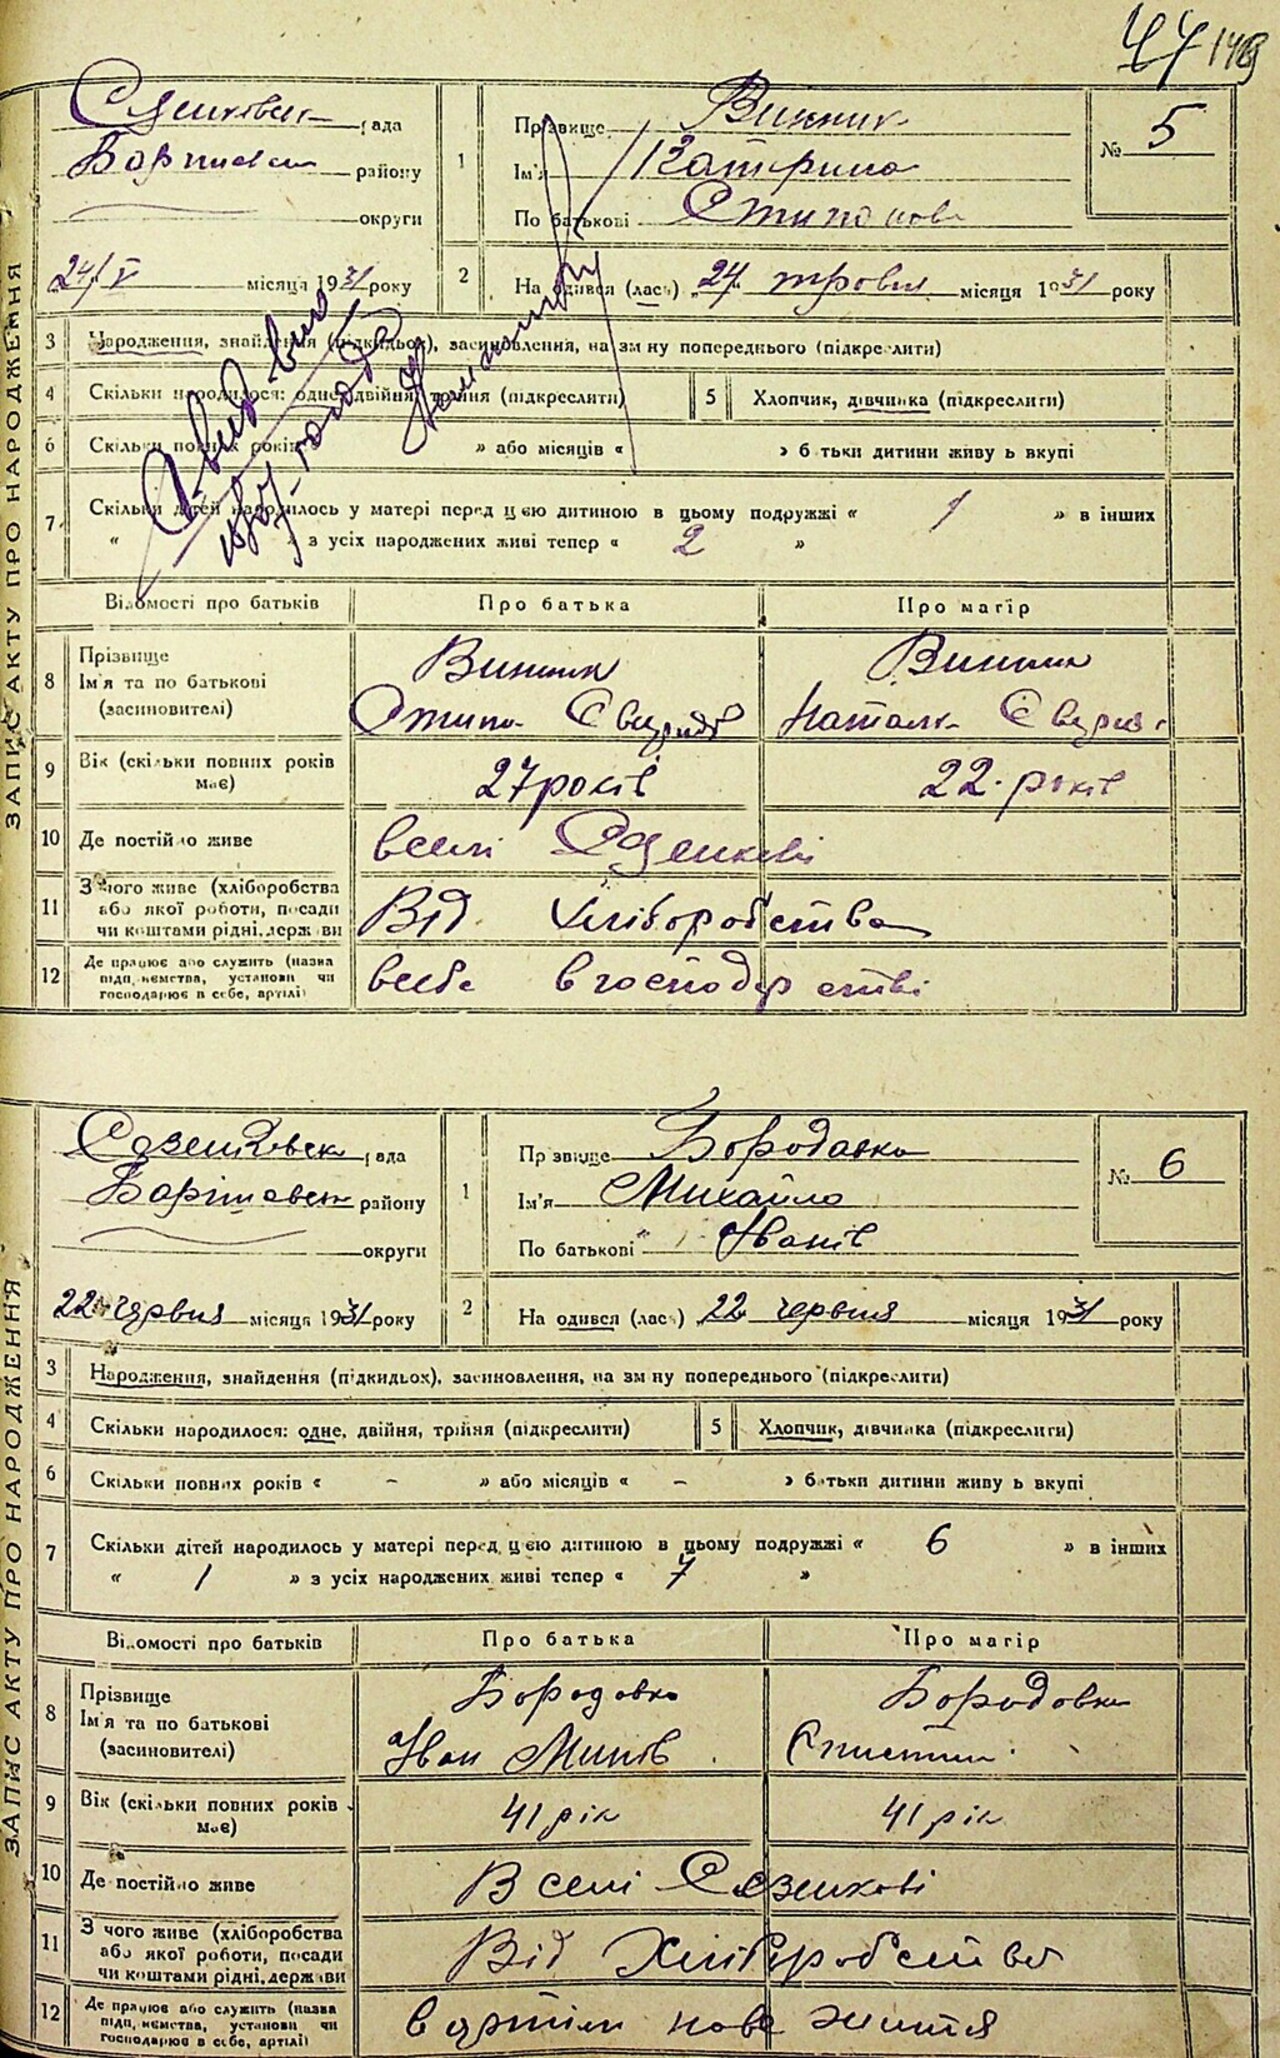 44 149
Сезенківськ рада
Баришевськ району
округи
24/V місяця 1931 року
1
Прізвище Винник
Ім'я Катерина
По батькові Степанова
№ 5
2 На одився (лась) 24 травня місяця 1931 року
3 Народження, знайдення (підкидьок), засиновлення, на зм ну попереднього (підкреслити)
4 Скільки народилося: одне, двійня, трійня (підкреслити) 5 Хлопчик, дівчинка (підкреслити)
6 Скільки повних років » або місяців « » б тьки дитини живу ь вкупі
7 Скільки дітей народилось у матері перед цією дитиною в цьому подружжі « 1 » в інших
« » з усіх народжених живі тепер « 2 »
Відомості про батьків Про батька Про матір
8 Прізвище
Ім'я та по батькові
(засиновителі)
Винник Винник
Наталк
9 Вік (скільки повних років
має)
27 років 22 років
10 Де постійно живе в селі Сезенкові
11 З чого живе (хліборобства
або якої роботи, посади
чи коштами рідні, держави
Від хліборобства
12 Де працює або служить (назва
підприємства, установи чи
господарює в себе, артілі)
в себе в господарстві
ЗАПИС АКТУ ПРО НАРОДЖЕННЯ
Сезенківськ рада
Баришевськ району
округи
22 червня місяця 1931 року
1
Прізвище Бородавка
Ім'я Михайло
По батькові Іванів
№ 6
2 На одився (лась) 22 червня місяця 1931 року
3 Народження, знайдення (підкидьох), засиновлення, на зм ну попереднього (підкреслити)
4 Скільки народилося: одне, двійня, трійня (підкреслити) 5 Хлопчик, дівчинка (підкреслити)
6 Скільки повних років « – » або місяців « – » батьки дитини живу ь вкупі
7 Скільки дітей народилось у матері перед цією дитиною в цьому подружжі « 6 » в інших
« 1 » з усіх народжених живі тепер « 7 »
Відомості про батьків Про батька Про матір
8 Прізвище
Ім'я та по батькові
(засиновителі)
Бородавка Бородавка
Іван Минів
9 Вік (скільки повних років
має)
41 рік 41 рік
10 Де постійно живе В селі Сезенкові
11 З чого живе (хліборобства
або якої роботи, посади
чи коштами рідні, держави
Від Хліборобства
12 Де працює або служить (назва
підприємства, установи чи
господарює в себе, артілі)
в артіли нове життя
ЗАПИС АКТУ ПРО НАРОДЖЕННЯ